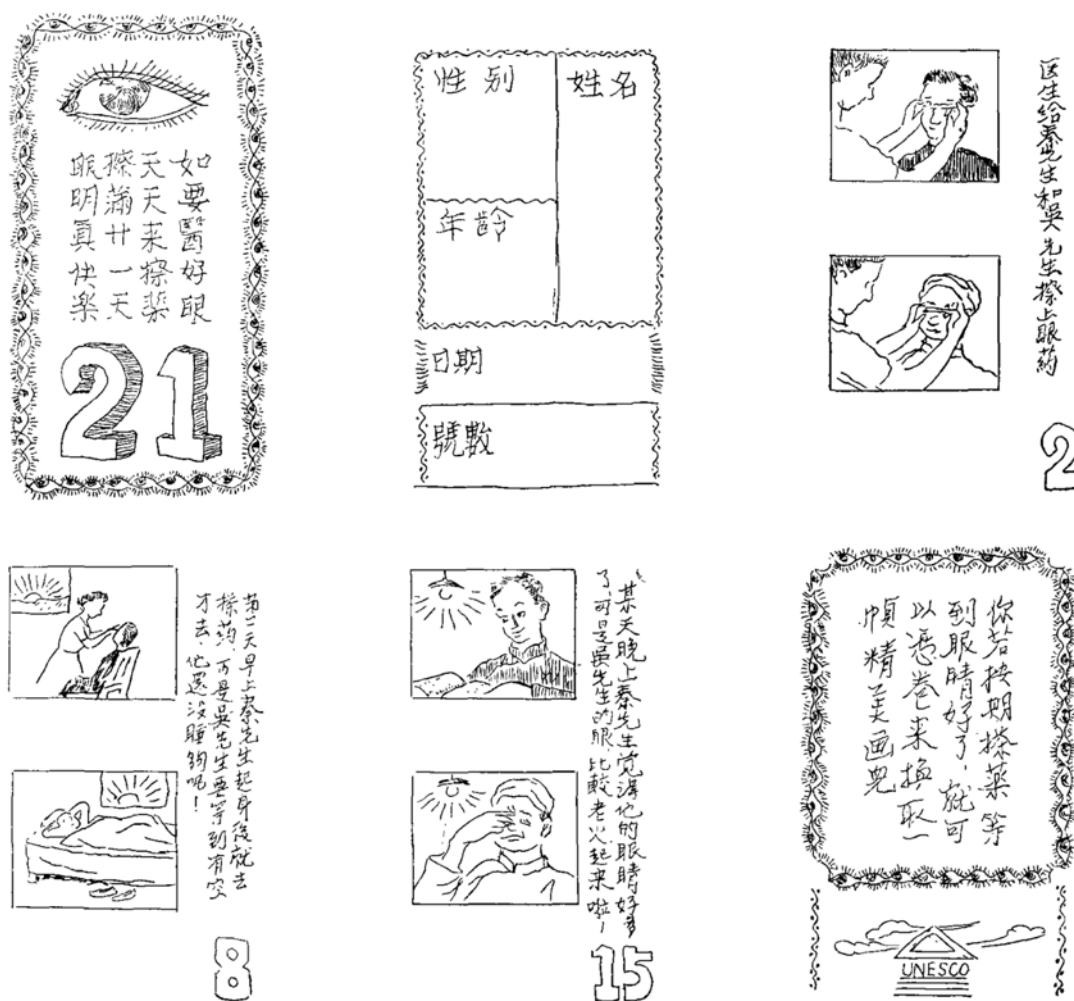 如要醫好眼
天天来擦薬
擦滿廿一天
眼明真快楽
21
姓名
性别
年齡
日期
號數
医生给秦先生和吳先生擦上眼药
2
第二天早上秦先生起身後就去
擦药,可是吳先生要等到有空
才去,他還没睡夠呢!
8
某天晚上秦先生觉得他的眼睛好多
了,可是吳先生的眼,比較老火起来啦!
15
你若按期擦薬等
到眼睛好了,就可
以憑卷来換取一
幀精美画兒
UNESCO